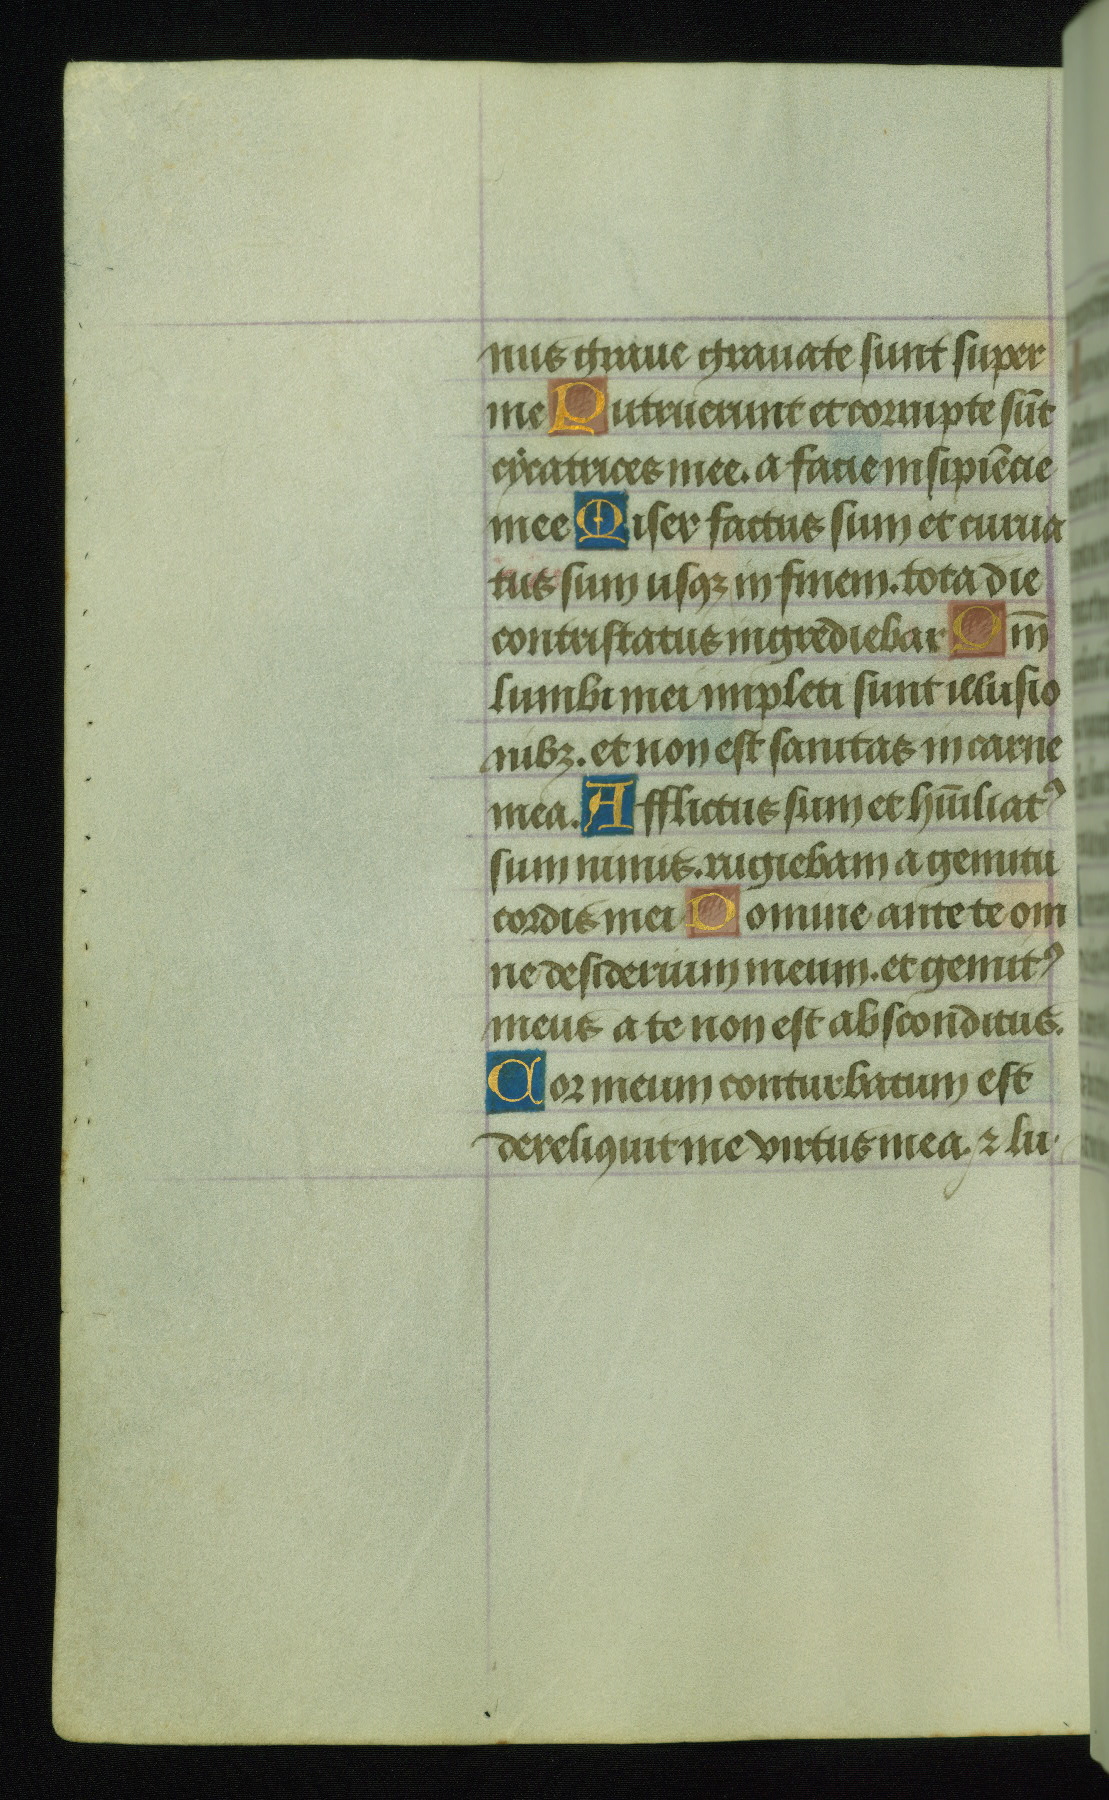 nus graue grauate sunt super
me Putruerunt et corrupte sūt
cycatrices mee. a facie insipiēcie
mee Miser factus sum et curua
tus sum usqꝫ in finem. tota die
contristatus ingrediebar Qm̄
lumbi mei impleti sunt illusio
nibꝫ. et non est sanitas in carne
mea. Afflictus sum et hūiliatꝰ
sum nimis. rugiebam a gemitu
cordis mei Domine ante te om
ne desiderium meum. et gemitꝰ
meus a te non est absconditus.
Cor meum conturbatum est
dereliquit me virtus mea. ⁊ lu